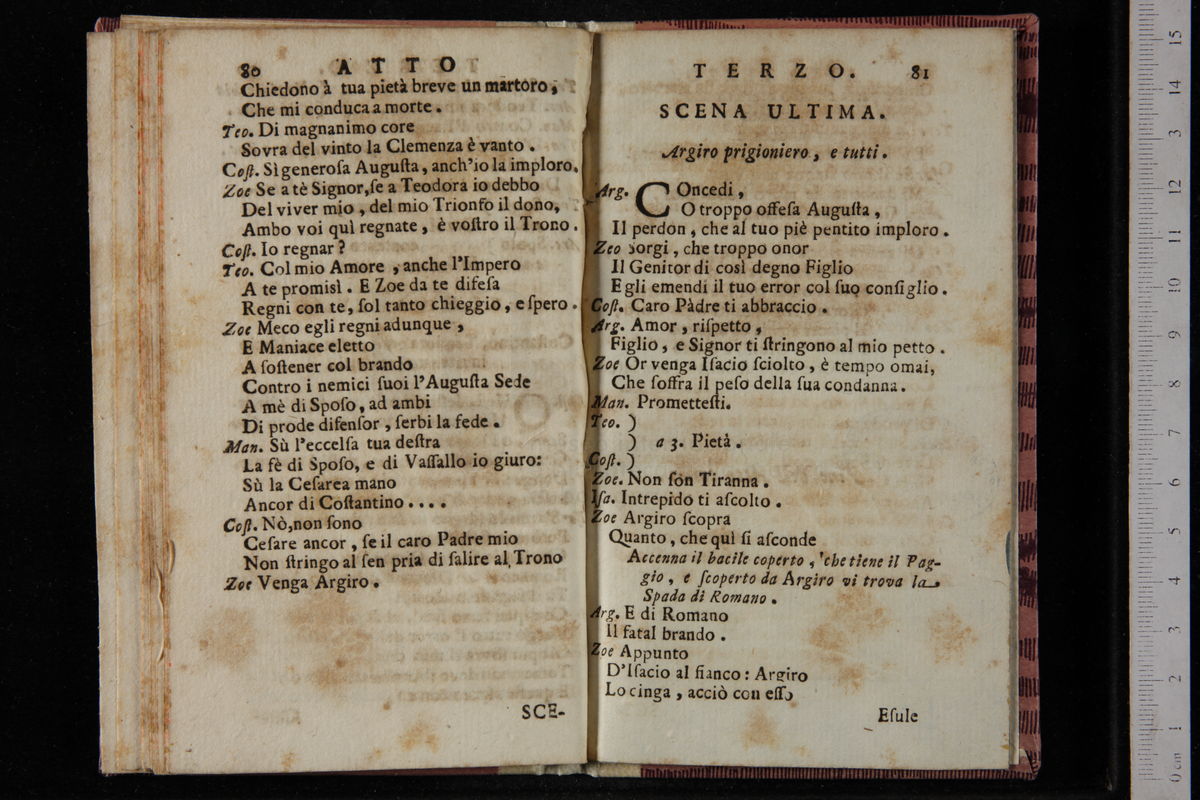 80 ATTO
Chiedono à tua pietà breve un martoro,
Che mi conduca a morte.
Teo. Di magnanimo core
Sovra del vinto la Clemenza è vanto.
Coſt. Sì generoſa Auguſta, anch'io la imploro.
Zoe Se a tè Signor, ſe a Teodora io debbo
Del viver mio, del mio Trionfo il dono,
Ambo voi quì regnate, è voſtro il Trono.
Coſt. Io regnar?
Teo. Col mio Amore, anche l'Impero
A te promisì. E Zoe da te difeſa
Regni con te, ſol tanto chieggio, e ſpero.
Zoe Meco egli regni adunque,
E Maniace eletto
A ſoſtener col brando
Contro i nemici ſuoi l'Auguſta Sede
A mè di Spoſo, ad ambi
Di prode difenſor, ſerbi la fede.
Man. Sù l'eccelſa tua deſtra
La fè di Spoſo, e di Vaſſallo io giuro:
Sù la Ceſarea mano
Ancor di Coſtantino....
Coſt. Nò, non ſono
Ceſare ancor, ſe il caro Padre mio
Non ſtringo al ſen pria di ſalire al Trono
Zoe Venga Argiro.
SCE-
TERZO. 81
SCENA ULTIMA.
Argiro prigioniero, e tutti.
Arg. COncedi,
O troppo offeſa Auguſta,
Il perdon, che al tuo piè pentito imploro.
Zeo Sorgi, che troppo onor
Il Genitor di così degno Figlio
Egli emendi il tuo error col ſuo conſiglio.
Coſt. Caro Pàdre ti abbraccio.
Arg. Amor, riſpetto,
Figlio, e Signor ti ſtringono al mio petto.
Zoe Or venga Iſacio ſciolto, è tempo omai,
Che ſoffra il peſo della ſua condanna.
Man. Prometteſti.
Teo. )
) a 3. Pietà.
Coſt. )
Zoe. Non ſon Tiranna.
Iſa. Intrepido ti aſcolto.
Zoe Argiro ſcopra
Quanto, che quì ſi aſconde
Accenna il bacile coperto, che tiene il Pag-
gio, e ſcoperto da Argiro vi trova la
Spada di Romano.
Arg. E di Romano
Il fatal brando.
Zoe Appunto
D'Iſacio al fianco: Argiro
Lo cinga, acciò con eſſo
Eſule
15
14
13
12
11
10
9
8
7
6
5
4
3
2
1
0 cm